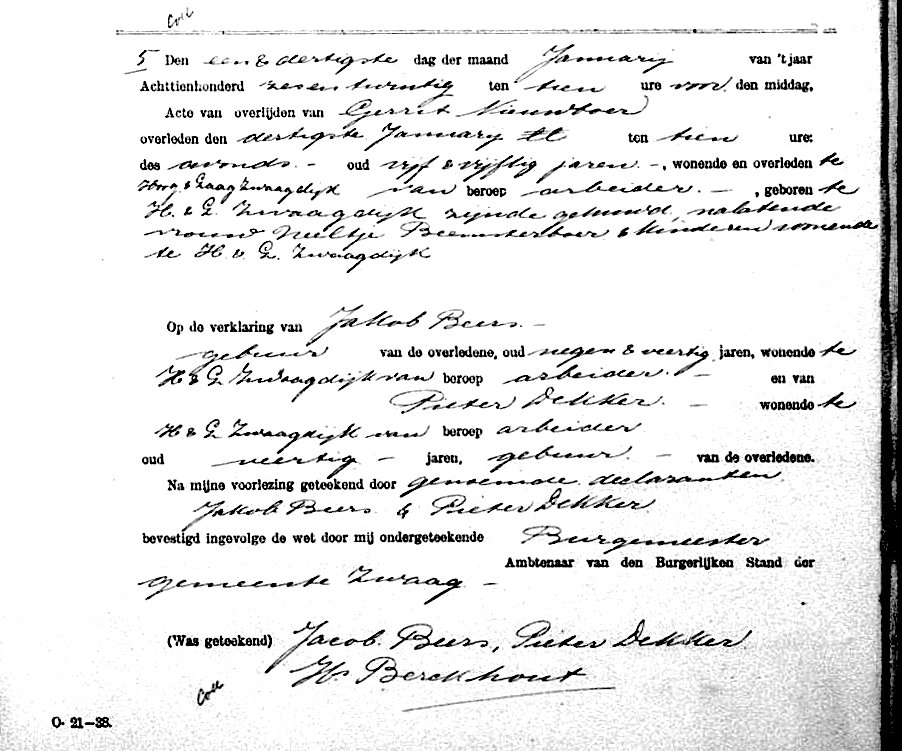 Coll
5 Den een & dertigste dag der maand January van 't jaar
Achttienhonderd zesentwintig ten tien ure voor den middag,
Acte van overlijden van Gerrit Nieuwboer
overleden den dertigste January ten tien ure:
des avonds. – oud vijf & vijftig jaren –, wonende en overleden te
Hoog & Laag Zwaagdijk van beroep arbeider. –, geboren te
H. & L. Zwaagdijk zijnde gehuwd, nalatende
vrouw Neeltje Beemsterboer & kinderen wonende
te H. & L. Zwaagdijk
Op de verklaring van Jakob Beers. –
gebuur van de overledene, oud negen & veertig jaren, wonende te
H & L Zwaagdijk van beroep arbeider. – en van
Pieter Dekker. – wonende te
H & L Zwaagdijk van beroep arbeider
oud veertig – jaren, gebuur. – van de overledene.
Na mijne voorlezing geteekend door genoemde declaranten.
Jakob Beers & Pieter Dekker
bevestigd ingevolge de wet door mij ondergeteekende Burgemeester
Ambtenaar van den Burgerlijken Stand der
gemeente Zwaag –
(Was geteekend) Jacob Beers, Pieter Dekker.
Berckhout
Coll
O. 21–38.